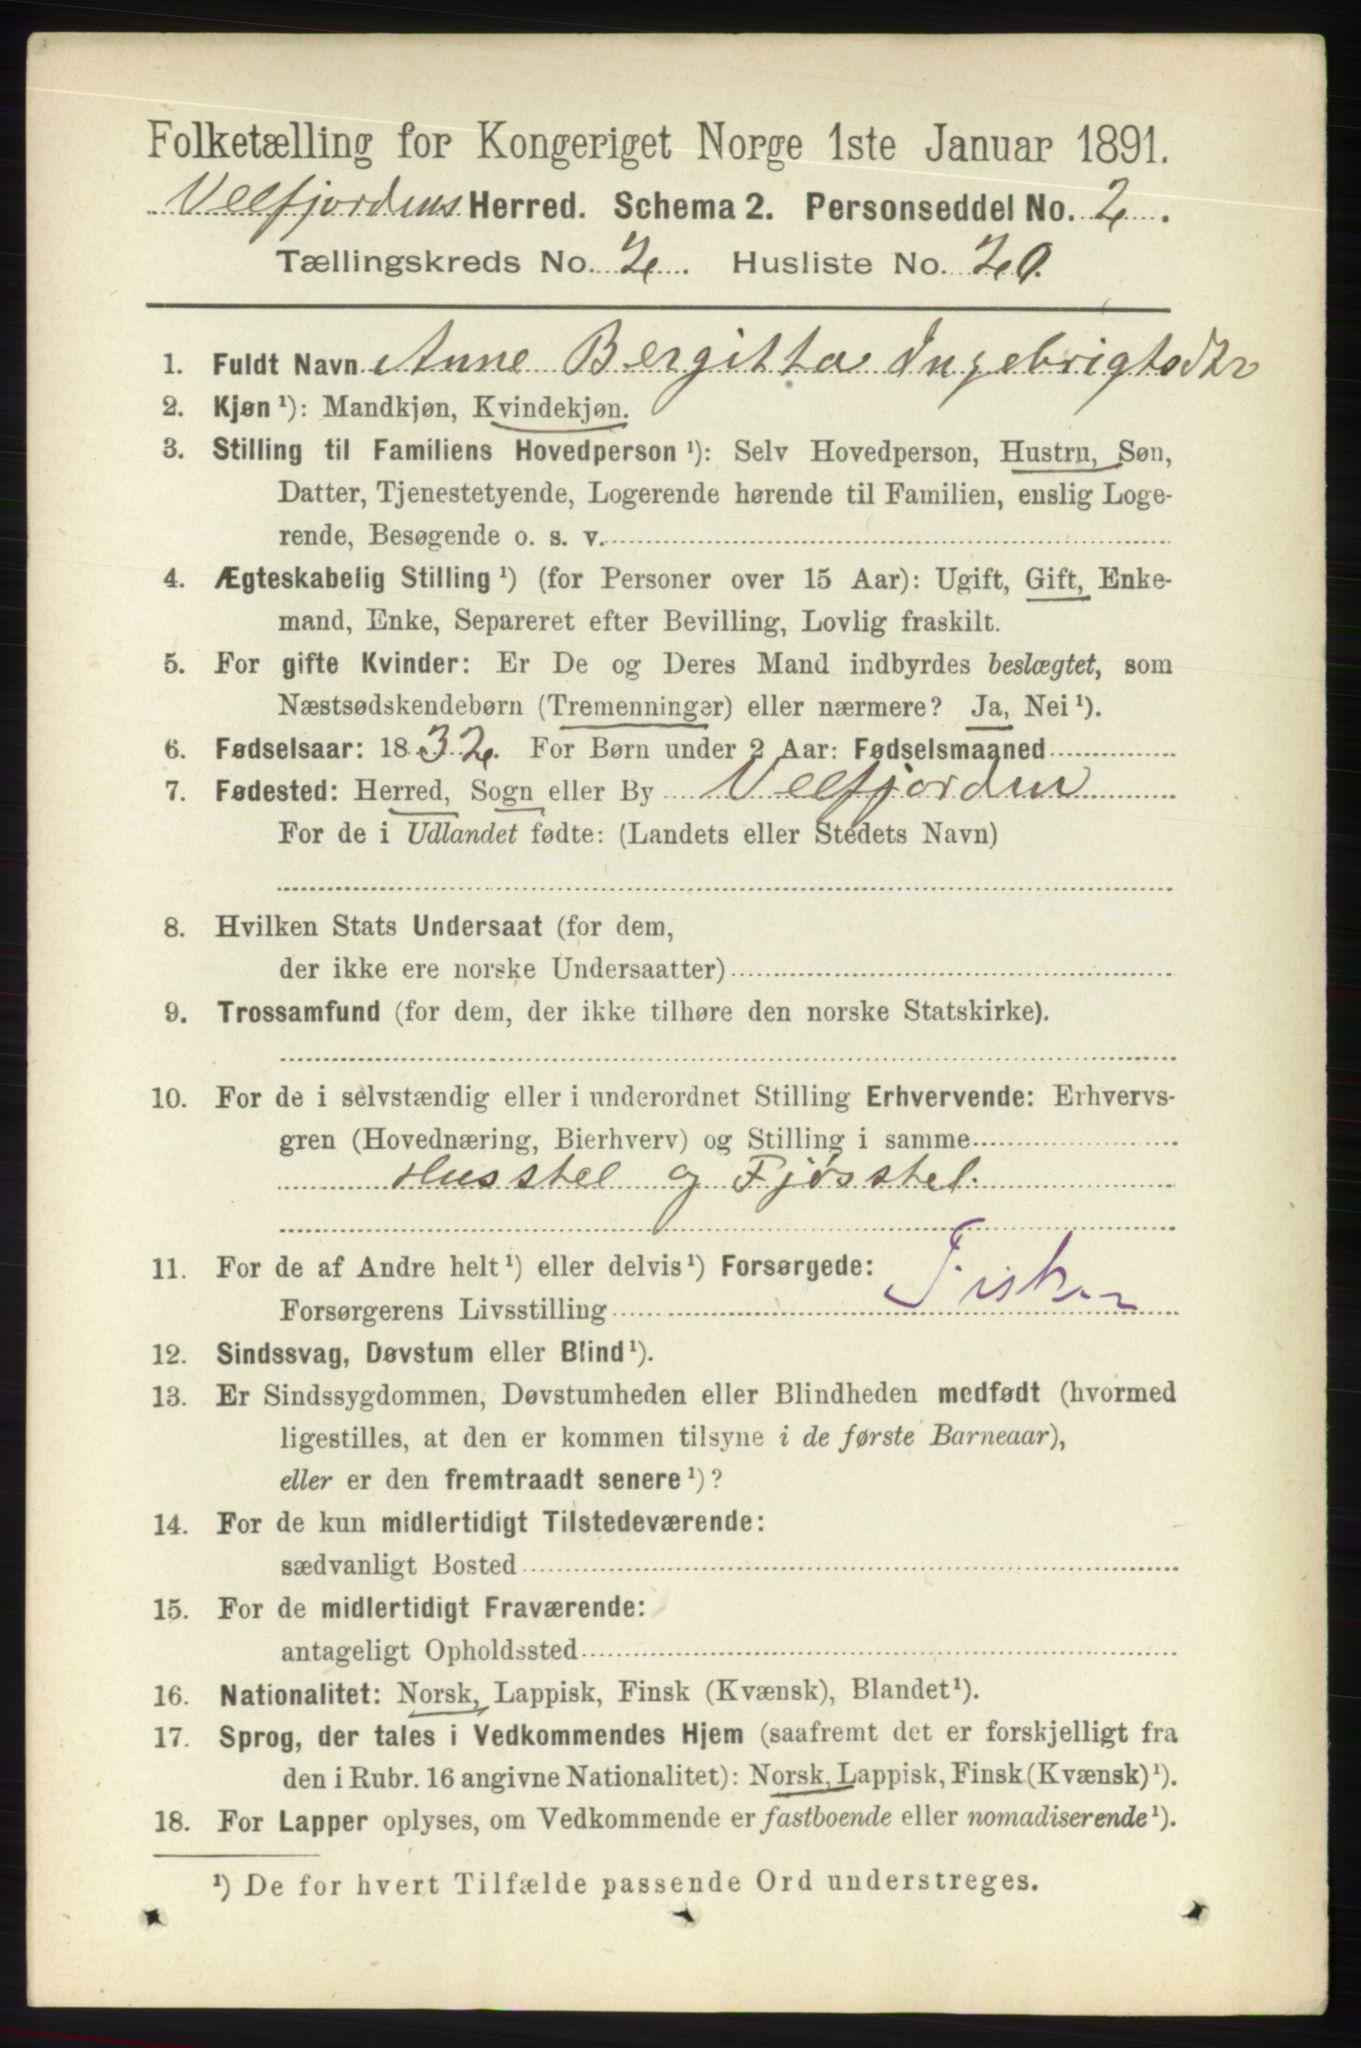 Folketælling for Kongeriget Norge 1ste Januar 1891.
Velfjordens Herred. Schema 2. Personseddel No. 2.
Tællingskreds No. 2. Husliste No. 20.
1. Fuldt Navn Anne Bergitta Ingebrigtsdtr
2. Kjøn ¹): Mandkjøn, Kvindekjøn.
3. Stilling til Familiens Hovedperson ¹): Selv Hovedperson, Hustru, Søn,
Datter, Tjenestetyende, Logerende hørende til Familien, enslig Loge-
rende, Besøgende o. s. v.
4. Ægteskabelig Stilling ¹) (for Personer over 15 Aar): Ugift, Gift, Enke-
mand, Enke, Separeret efter Bevilling, Lovlig fraskilt.
5. For gifte Kvinder: Er De og Deres Mand indbyrdes beslægtet, som
Næstsødskendebørn (Tremenninger) eller nærmere? Ja, Nei ¹).
6. Fødselsaar: 1832. For Børn under 2 Aar: Fødselsmaaned
7. Fødested: Herred, Sogn eller By Velfjorden
For de i Udlandet fødte: (Landets eller Stedets Navn)
8. Hvilken Stats Undersaat (for dem,
der ikke ere norske Undersaatter)
9. Trossamfund (for dem, der ikke tilhøre den norske Statskirke).
10. For de i selvstændig eller i underordnet Stilling Erhvervende: Erhvervs-
gren (Hovednæring, Bierhverv) og Stilling i samme
Husstel og Fjøsstel.
11. For de af Andre helt ¹) eller delvis ¹) Forsørgede:
Forsørgerens Livsstilling Fisker
12. Sindssvag, Døvstum eller Blind ¹).
13. Er Sindssygdommen, Døvstumheden eller Blindheden medfødt (hvormed
ligestilles, at den er kommen tilsyne i de første Barneaar),
eller er den fremtraadt senere ¹)?
14. For de kun midlertidigt Tilstedeværende:
sædvanligt Bosted
15. For de midlertidigt Fraværende:
antageligt Opholdssted
16. Nationalitet: Norsk, Lappisk, Finsk (Kvænsk), Blandet ¹).
17. Sprog, der tales i Vedkommendes Hjem (saafremt det er forskjelligt fra
den i Rubr. 16 angivne Nationalitet): Norsk, Lappisk, Finsk (Kvænsk) ¹).
18. For Lapper oplyses, om Vedkommende er fastboende eller nomadiserende ¹).
¹) De for hvert Tilfælde passende Ord understreges.